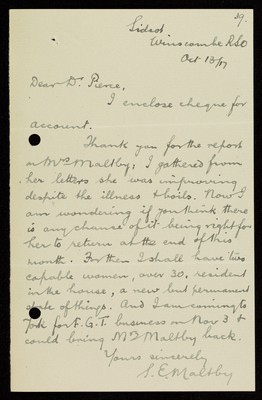 29.
Sidcot
Winscombe RSO
Oct 13/17
Dear Dr Pierce,
I enclose cheque for
account.
Thank you for the report
on Mrs Maltby; I gathered from
her letters she was improving
despite the illness & boils. Now I
am wondering if you think there
is any chance of it being right for
her to return at the end of this
month. For then I shall have two
capable women, over 30, resident
in the house, a new but permanent
state of things. And I am coming to
York for F.G.T. business on Nov 3 &
could bring Mrs Maltby back.
Yours sincerely
S. E. Maltby